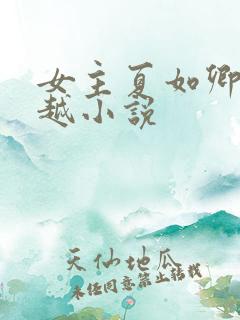 女主夏如卿
越小说
天仙地瓜
未经同意禁止转载